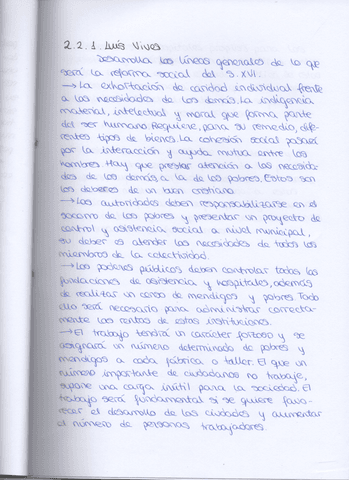 2.2.1. Luis Vives
Desarrolla las líneas generales de lo que
será la reforma social del S.XVI.
→ La exhortación de caridad individual frente
a las necesidades de los demás. La indigencia
material, intelectual y moral que forma parte
del ser humano. Requiere, para su remedio, dife-
rentes tipos de bienes. La cohesión social pasará
por la interacción y ayuda mutua entre los
hombres. Hay que prestar atención a las necesida-
des de los demás, a la de los pobres. Estos son
los deberes de un buen cristiano.
→ Las autoridades deben responsabilizarse en el
socorro de los pobres y presentar un proyecto de
control y asistencia social a nivel municipal,
su deber es atender las necesidades de todos los
miembros de la colectividad.
→ Los poderes públicos deben controlar todas las
fundaciones de asistencia y hospitales, además
de realizar un censo de mendigos y pobres. Todo
ello será necesario para administrar correcta-
mente las rentas de estas instituciones.
→ El trabajo tendrá un carácter forzoso y se
asignará un número determinado de pobres y
mendigos a cada fábrica o taller. El que un
número importante de ciudadanos no trabaje,
supone una carga inútil para la sociedad. El
trabajo será fundamental si se quiere favo-
recer el desarrollo de las ciudades y aumentar
el número de personas trabajadores.